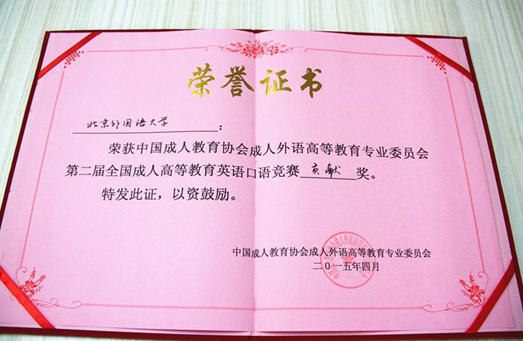 荣誉证书
北京外国语大学：
荣获中国成人教育协会成人外语高等教育专业委员会
第二届全国成人高等教育英语口语竞赛 贡献 奖。
特发此证，以资鼓励。
中国成人教育协会成人外语高等教育专业委员会
二〇一五年四月